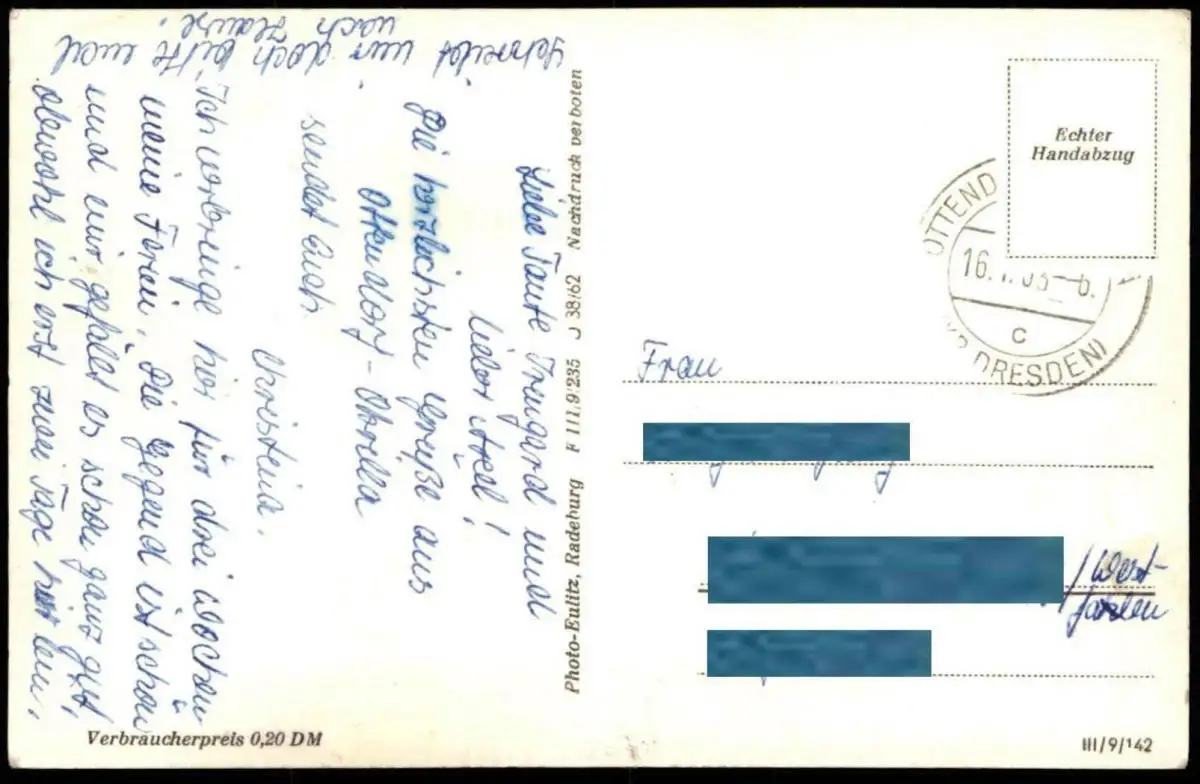 Liebe Tante Irmgard und
lieber Axel!
Die herzlichsten Grüße aus
Ottendorf-Okrilla
sendet Euch
Christina.
Ich verbringe hier für drei Wochen
meine Ferien. Die Gegend ist schön
und mir gefällt es schon ganz gut,
obwohl ich erst zwei Tage hier bin.
Schreibt mir doch bitte mal
nach Hause.
Photo-Eulitz, Radeburg F III/9/235 J 38/62 Nachdruck verboten
Echter
Handabzug
OTTEND
16.
c
DRESDEN)
Frau
/West-
falen
Verbraucherpreis 0,20 DM
III/9/142